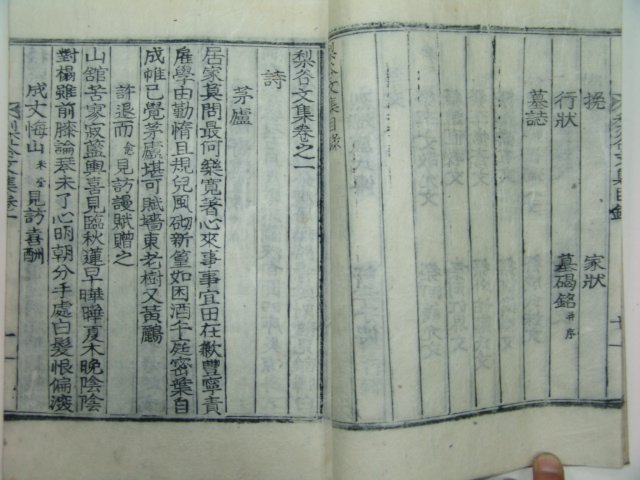 挽
行狀
墓誌
家狀
墓碣銘 并序
梨谷文集目錄
梨谷文集卷之一
詩
茅廬
居家莫問最何樂寬著心來事事宜田在歉豊寧責
雇學由勤惰且規兒風砌新篁如困酒午庭密葉自
成帷已覺茅廬堪可賦墻東老樹又黃鸝
許退而 見訪謾賦贈之
山舘苦家寂藍輿喜見臨秋蓮早曄曄夏木晩陰陰
對榻雖前膝論琴未了心明朝分手處白髮恨偏深
成丈梅山 見訪喜酬